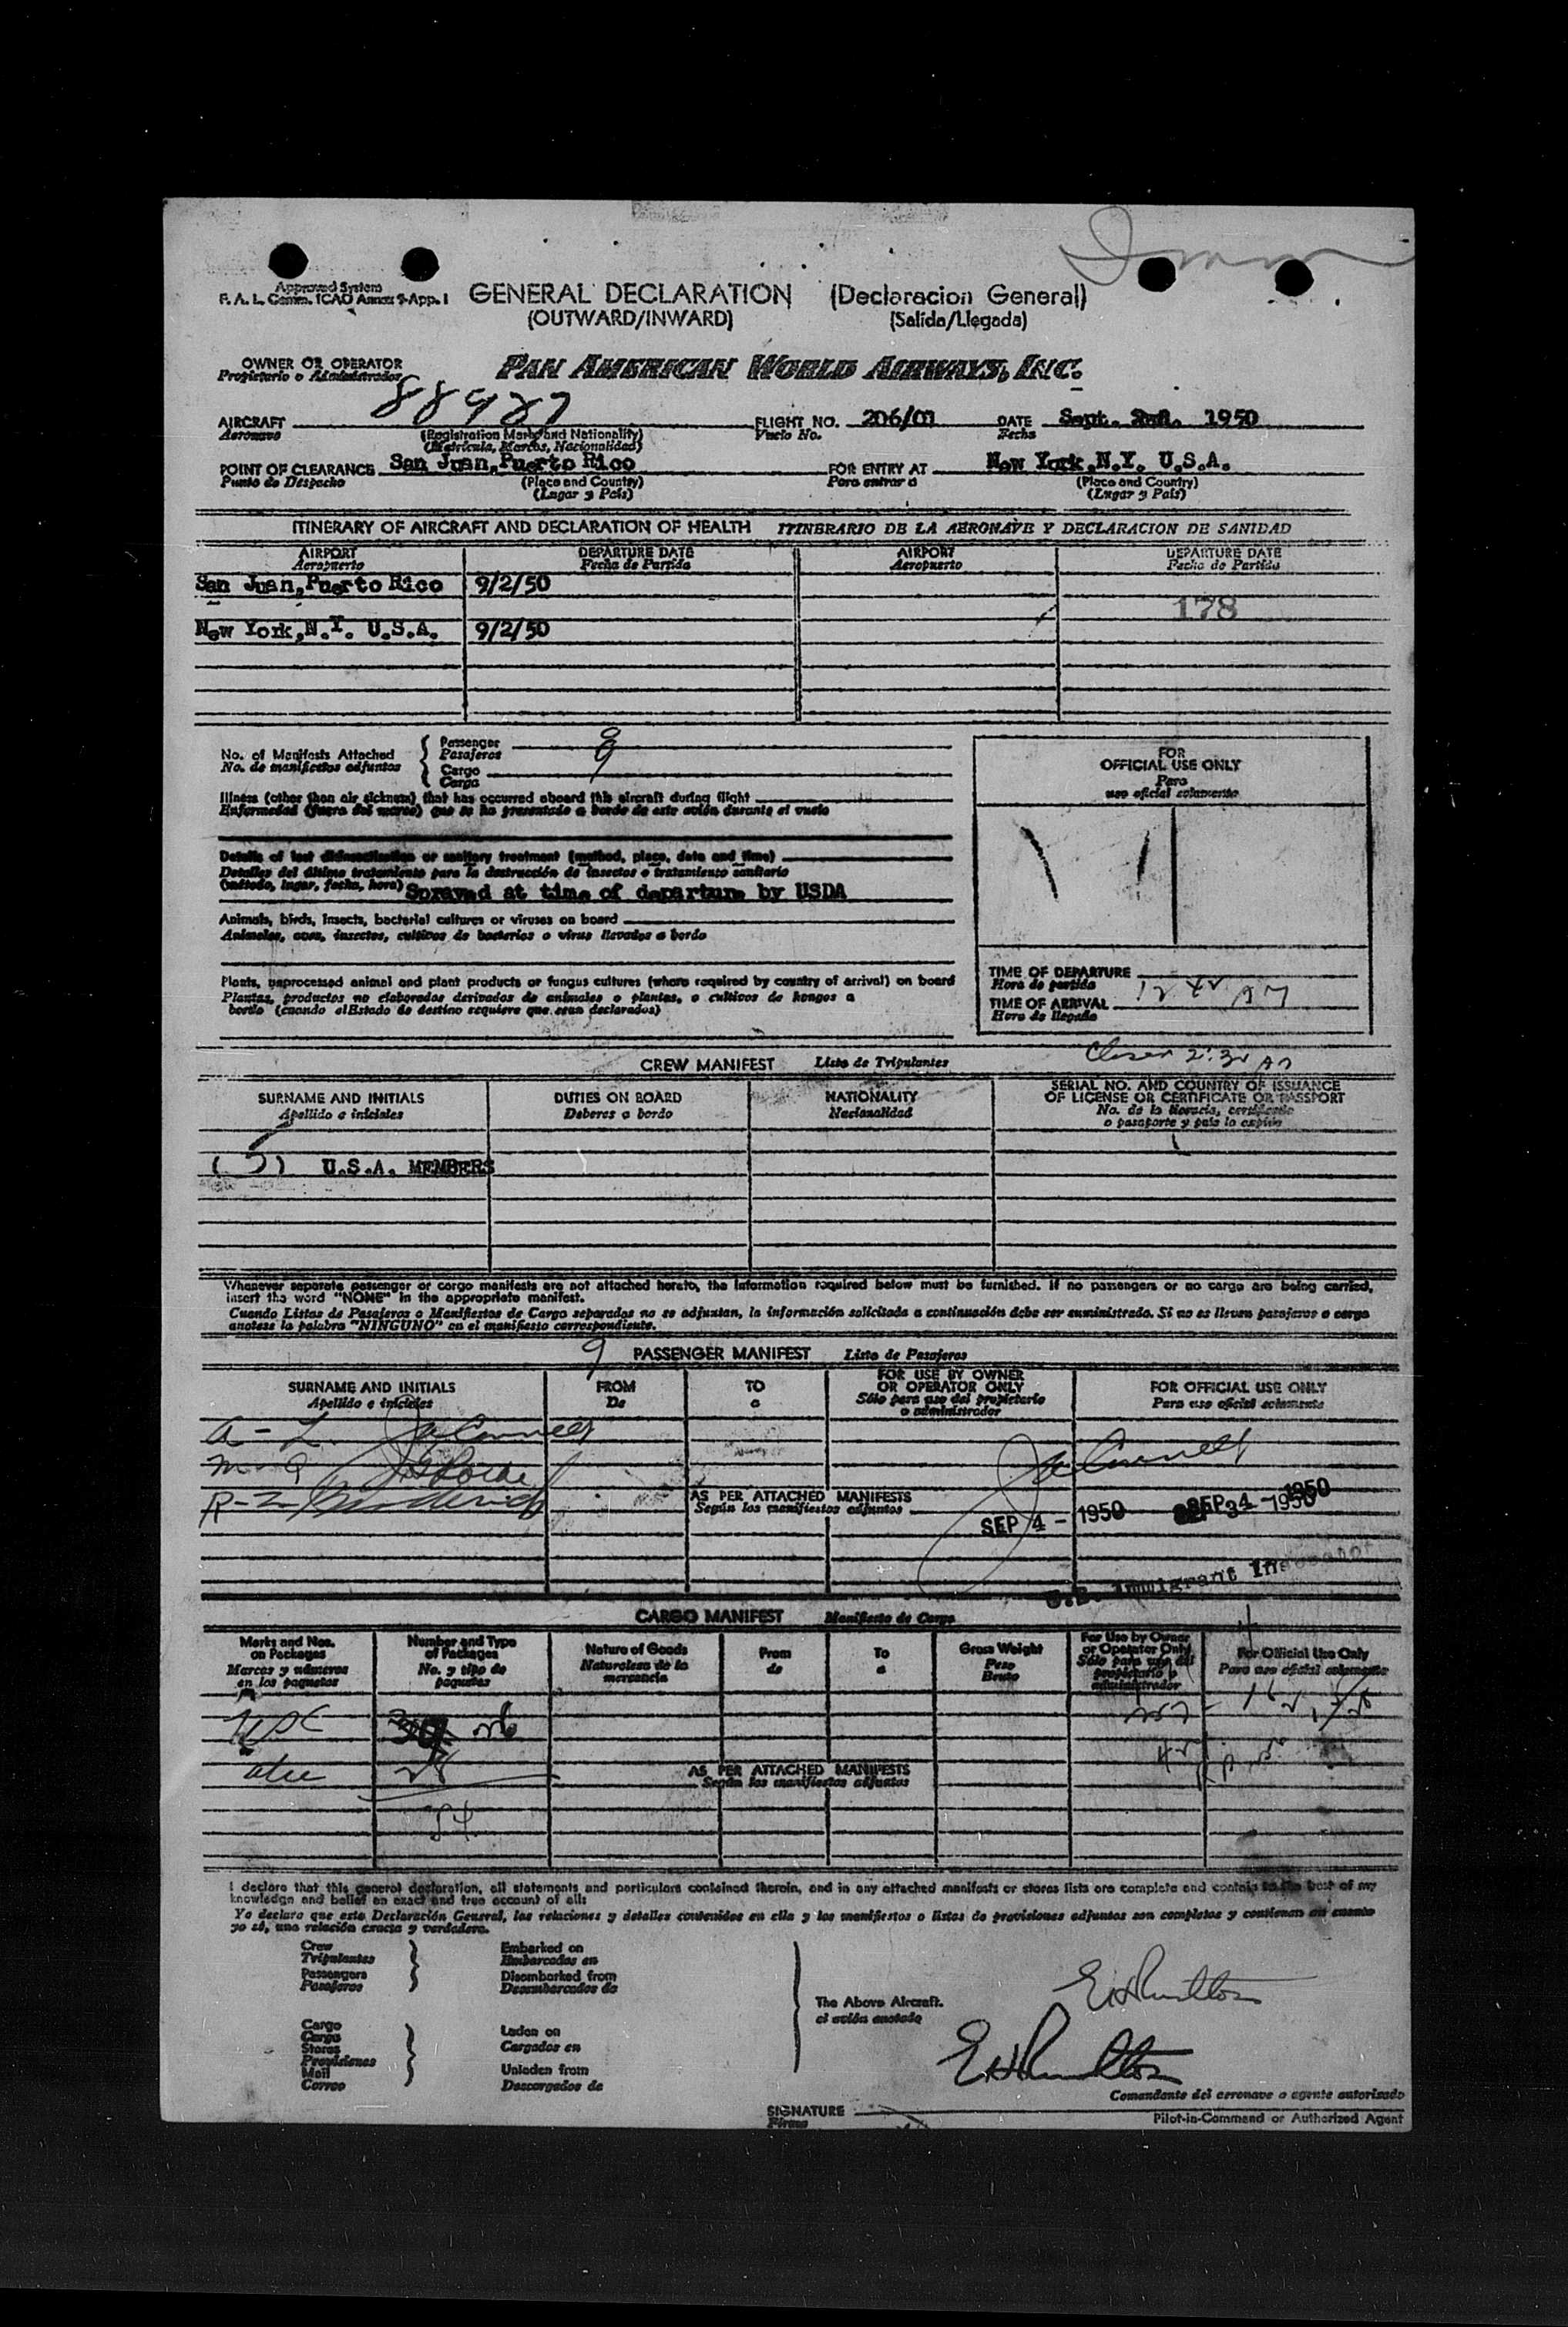 Approved System
F. A. L. Comm. ICAO Annex 9-App. 1
GENERAL DECLARATION (Declaracion General)
(OUTWARD/INWARD) (Salida/Llegada)
OWNER OR OPERATOR
Propietario o Administrador
PAN AMERICAN WORLD AIRWAYS, INC.
AIRCRAFT 88987 FLIGHT NO. 206/03 DATE Sept. 2nd. 1950
Aeronave (Registration Marks and Nationality) Vuelo No. Fecha
(Matricula, Marcas, Nacionalidad)
POINT OF CLEARANCE San Juan, Puerto Rico FOR ENTRY AT New York, N.Y. U.S.A.
Punto de Despacho (Place and Country) Para entrar a (Place and Country)
(Lugar y País) (Lugar y País)
ITINERARY OF AIRCRAFT AND DECLARATION OF HEALTH ITINERARIO DE LA AERONAVE Y DECLARACION DE SANIDAD
AIRPORT DEPARTURE DATE AIRPORT DEPARTURE DATE
Aeropuerto Fecha de Partida Aeropuerto Fecha de Partida
San Juan, Puerto Rico 9/2/50
178
New York, N.Y. U.S.A. 9/2/50
No. of Manifests Attached
No. de manifiestos adjuntos
Passenger
Pasajeros
9
Cargo
Carga
FOR
OFFICIAL USE ONLY
Para
uso oficial solamente
Illness (other than air sickness) that has occurred aboard this aircraft during flight
Enfermedad (fuera del mareo) que se ha presentado a bordo de este avión durante el vuelo
Details of last disinsectization or sanitary treatment (method, place, date and time)
Detalles del último tratamiento para la destrucción de insectos o tratamiento sanitario
(método, lugar, fecha, hora) Sprayed at time of departure by USDA
Animals, birds, insects, bacterial cultures or viruses on board
Animales, aves, insectos, cultivos de bacterias o virus llevados a bordo
Plants, unprocessed animal and plant products or fungus cultures (where required by country of arrival) on board
Plantas, productos no elaborados derivados de animales o plantas, o cultivos de hongos a
bordo (cuando el Estado de destino requiere que sean declarados)
TIME OF DEPARTURE
Hora de partida
TIME OF ARRIVAL
Hora de llegada
CREW MANIFEST Lista de Tripulantes
SURNAME AND INITIALS DUTIES ON BOARD NATIONALITY SERIAL NO. AND COUNTRY OF ISSUANCE
OF LICENSE OR CERTIFICATE OR PASSPORT
Apellido e iniciales Deberes a bordo Nacionalidad No. de la licencia, certificado
o pasaporte y país lo expidio
(5) U.S.A. MEMBERS
Whenever separate passenger or cargo manifests are not attached hereto, the information required below must be furnished. If no passengers or no cargo are being carried,
insert the word "NONE" in the appropriate manifest.
Cuando Listas de Pasajeros o Manifiestos de Cargo separados no se adjuntan, la información solicitada a continuación debe ser suministrada. Si no se lleven pasajeros o carga
anotese la palabra "NINGUNO" en el manifiesto correspondiente.
9 PASSENGER MANIFEST Lista de Pasajeros
SURNAME AND INITIALS FROM TO FOR USE BY OWNER
OR OPERATOR ONLY FOR OFFICIAL USE ONLY
Apellido e iniciales De a Sólo para uso del propietario
o administrador Para uso oficial solamente
A - L
R - Z
AS PER ATTACHED MANIFESTS
Según los manifiestos adjuntos
SEP 4 - 1950 SEP 4 - 1950
U.S. Immigrant Inspector
CARGO MANIFEST Manifiesto de Carga
Marks and Nos.
on Packages
Marcas y números
en los paquetes
Number and Type
of Packages
No. y tipo de
paquetes
Nature of Goods
Naturaleza de la
mercancia
From
de
To
a
Gross Weight
Peso
Bruto
For Use by Owner
or Operator Only
Sólo para uso del
propietario o
administrador
For Official Use Only
Para uso oficial solamente
26
28
54
AS PER ATTACHED MANIFESTS
Según los manifiestos adjuntos
I declare that this general declaration, all statements and particulars contained therein, and in any attached manifests or stores lists are complete and contain to the best of my
knowledge and belief an exact and true account of all:
Yo declaro que esta Declaración General, las relaciones y detalles contenidos en ella y los manifiestos o listas de provisiones adjuntos son completos y contienen en cuanto
yo sé, una relación exacta y verdadera.
Crew
Tripulantes
Passengers
Pasajeros
Embarked on
Embarcados en
Disembarked from
Desembarcados de
The Above Aircraft.
el avión anotado
Cargo
Carga
Stores
Provisiones
Mail
Correo
Laden on
Cargados en
Unladen from
Descargados de
Comandante del aeronave o agente autorizado
SIGNATURE
Firma
Pilot-in-Command or Authorized Agent